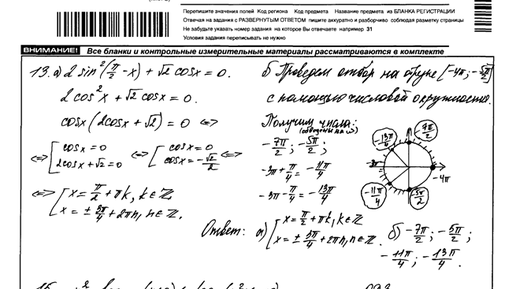 Перепишите значения полей Код региона Код предмета Название предмета из БЛАНКА РЕГИСТРАЦИИ
Отвечая на задания с РАЗВЕРНУТЫМ ОТВЕТОМ пишите аккуратно и разборчиво соблюдая разметку страницы
Не забудьте указать номер задания на которое Вы отвечаете например 31
Условия задания переписывать не нужно
ВНИМАНИЕ! Все бланки и контрольные измерительные материалы рассматриваются в комплекте
13. а) 2 sin²(π/2 - x) + √2 cosx = 0.
2cos²x + √2 cosx = 0.
cosx(2cosx + √2) = 0 <=>
<=> [cosx = 0 2cosx + √2 = 0 <=> [cosx = 0 cosx = -√2/2 <=>
<=> [x = π/2 + πk, k∈Z x = ± 3π/4 + 2πn, n∈Z.
б) Проведем отбор на отрезке [-4π; -5π/2]
с помощью числовой окружности.
Получим числа:
-7π/2; -5π/2;
-3π + π/4 = -11π/4
-3π - π/4 = -13π/4
-13π/4 -7π/2
-3π -4π
-11π/4 -5π/2
Ответ: а) [x = π/2 + πk, k∈Z x = ± 3π/4 + 2πn, n∈Z. б) -7π/2; -5π/2;
-11π/4; -13π/4.